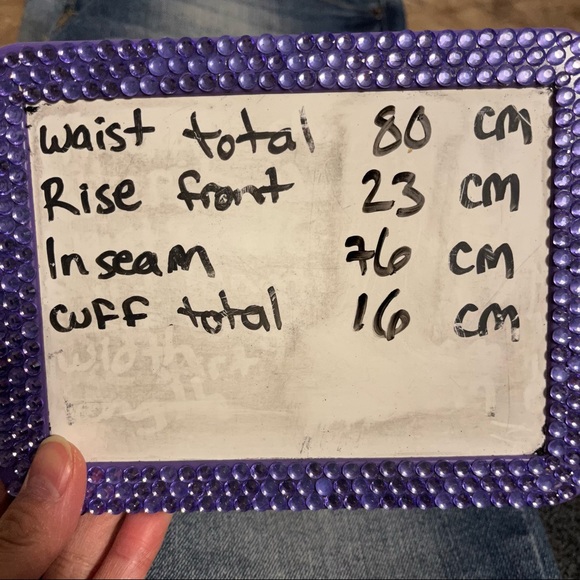 waist total 80 cm
Rise front 23 cm
Inseam 76 cm
cuff total 16 cm
width